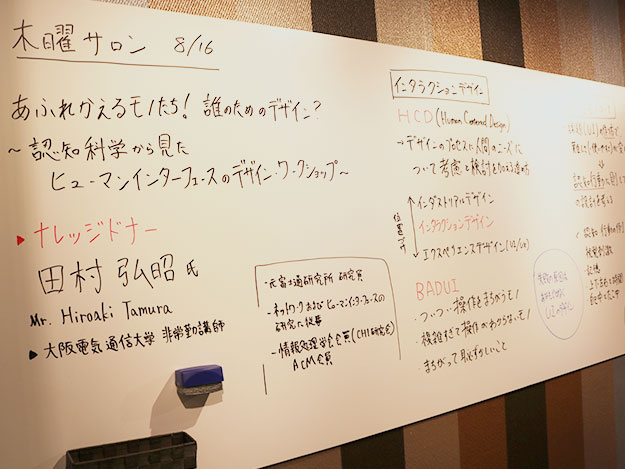 木曜サロン 8/16
あふれかえるモノたち! 誰のためのデザイン?
~認知科学から見た
ヒューマンインターフェースのデザイン・ワークショップ~
▶ナレッジドナー
田村 弘昭 氏
Mr. Hiroaki Tamura
▶大阪電気通信大学 非常勤講師
・元富士通研究所 研究員
-ネットワークおよびヒューマンインターフェースの
研究に従事
-情報処理学会会員(CHI研究会)
ACM会員
インタラクションデザイン
HCD(Human Centered Design)
→デザインのプロセスに人間のニーズに
ついて考慮と検討を加える進め方
位置づけ
インダストリアルデザイン
インタラクションデザイン
エクスペリエンスデザイン(UI/UX)
BADUI
・ついつい操作をまちがうモノ
・複雑すぎて操作がわからないモノ
・まちがって恥ずかしいこと